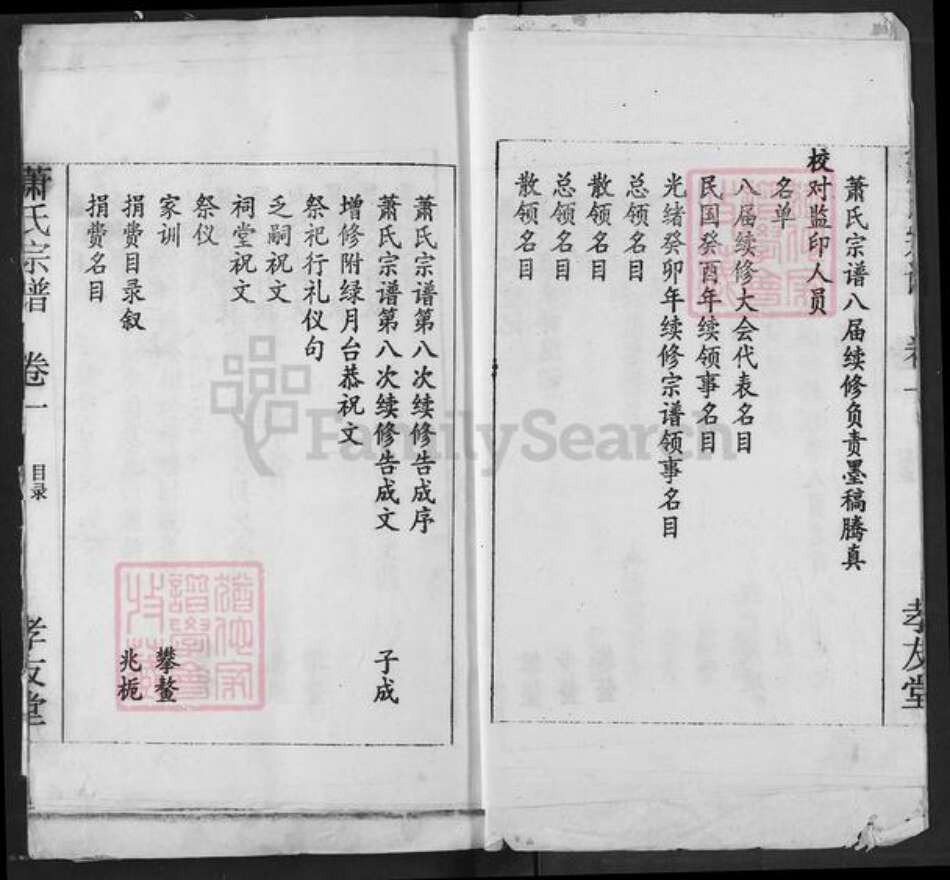 萧氏宗谱八届续修负责墨稿腾真
校对监印人员
名单
八届续修大会代表名目
民国癸酉年续领事名目
光绪癸卯年续修宗谱领事名目
总领名目
散领名目
总领名目
散领名目
萧氏宗谱第八次续修告成序
萧氏宗谱第八次续修告成文 子成
增修附绿月台恭祝文
祭祀行礼仪句
乏嗣祝文
祠堂祝文
祭仪
家训 攀鳌
捐费目录叙 兆栀
捐费名目
萧氏宗谱 卷一 目录 孝友堂
孝友堂
FamilySearch